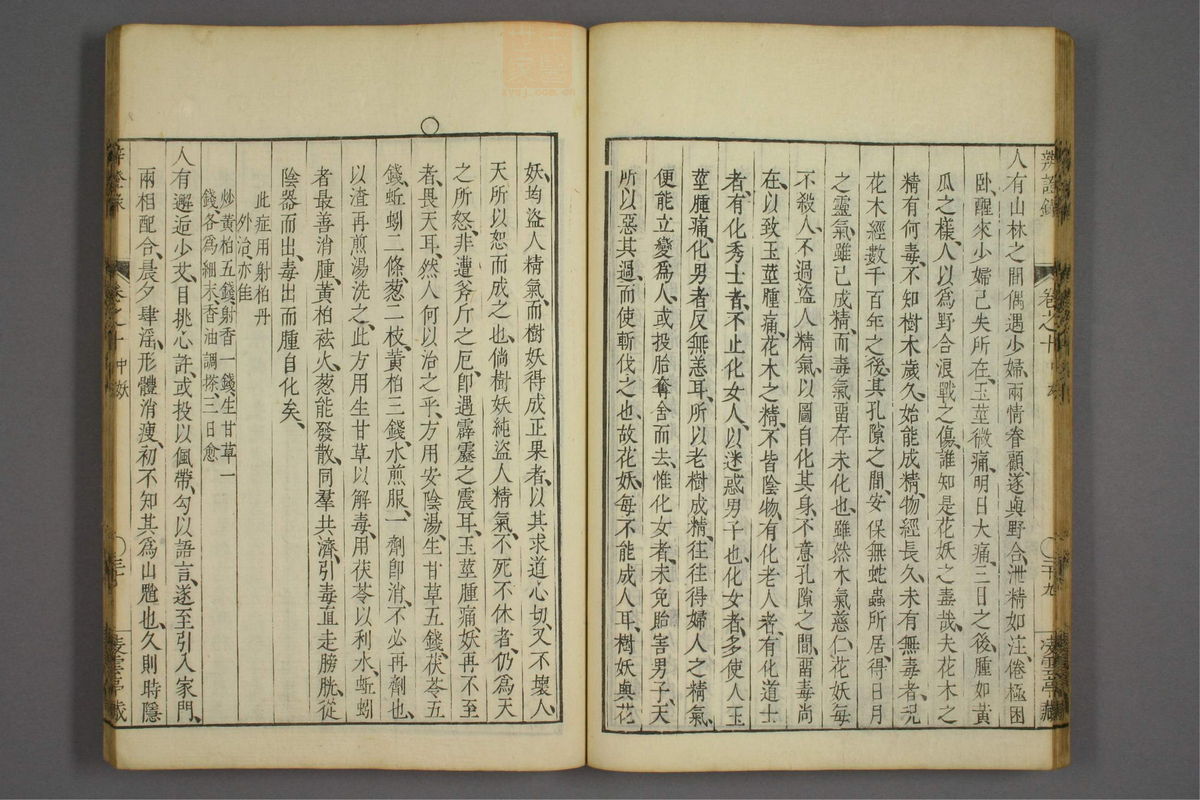 辨證錄 卷之十 中妖 二十九 凌雲亭藏
人有山林之間偶遇少婦、兩情眷顧、遂與野合、泄精如注、倦極困
臥、醒來少婦已失所在、玉莖微痛、明日大痛、三日之後、腫如黃
瓜之樣、人以爲野合浪戰之傷、誰知是花妖之毒哉、夫花木之
精有何毒、不知樹木歲久、始能成精、物經長久、未有無毒者、況
花木經數千百年之後、其孔隙之間、安保無蛇蟲所居、得日月
之靈氣、雖已成精、而毒氣留存未化也、雖然木氣慈仁、花妖每
不殺人、不過盜人精氣、以圖自化其身、不意孔隙之間、留毒尚
在、以致玉莖腫痛、花木之精、不皆陰物、有化老人者、有化道士
者、有化秀士者、不止化女人、以迷惑男子也、化女者、多使人玉
莖腫痛、化男者反無恙耳、所以老樹成精、往往得婦人之精氣、
便能立變爲人、或投胎奪舍而去、惟化女者、未免貽害男子、天
所以惡其過、而使斬伐之也、故花妖每不能成人耳、樹妖與花
妖、均盜人精氣、而樹妖得成正果者、以其求道心切、又不壞人、
天所以恕而成之也、倘樹妖純盜人精氣、不死不休者、仍爲天
之所怒、非遭斧斤之厄、卽遇霹靂之震耳、玉莖腫痛、妖再不至
者、畏天耳、然人何以治之乎、方用安陰湯、生甘草五錢、茯苓五
錢、蚯蚓二條、葱二枝、黃柏三錢、水煎服、一劑卽消、不必再劑也、
以渣再煎湯洗之、此方用生甘草以解毒、用茯苓以利水、蚯蚓
者最善消腫、黃柏祛火、葱能發散、同羣共濟、引毒直走膀胱、從
陰器而出、毒出而腫自化矣、
此症用射柏丹
外治、亦佳
炒黃柏五錢、射香一錢、生甘草一
錢、各爲細末、香油調搽、三日愈
人有邂逅少艾、目挑心許、或投以佩帶、勾以語言、遂至引入家門、
兩相配合、晨夕肆淫、形體消瘦、初不知其爲山魈也、久則時隱
卷之十 中妖 三十 凌雲亭藏